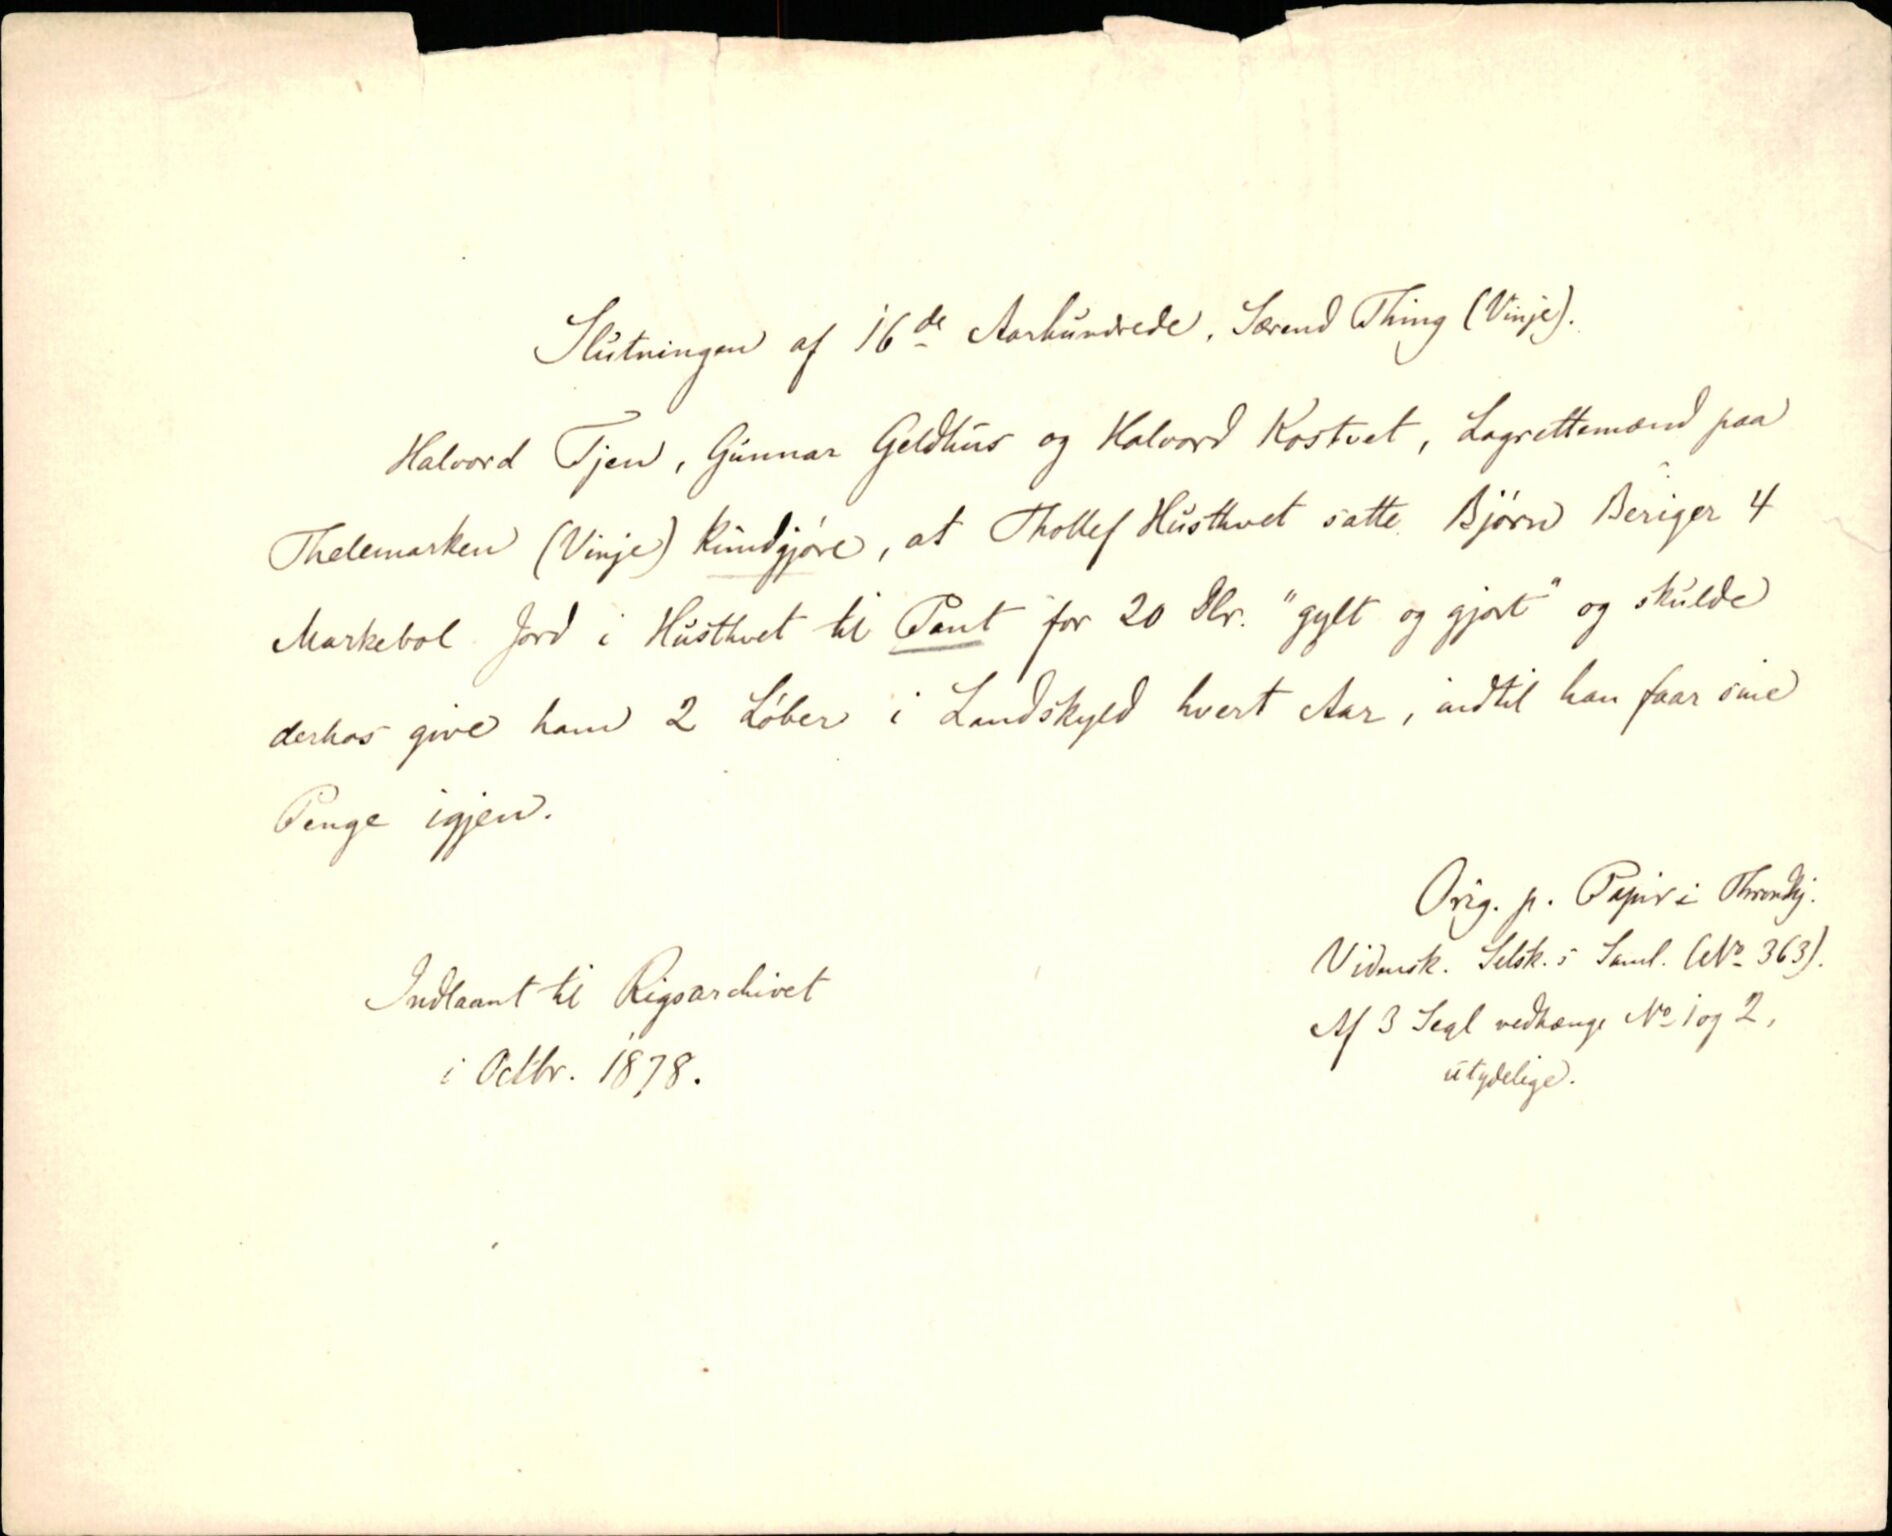 Slutningen af 16de Aarhundrede. Særend Thing (Vinje).
Halvord Tjen, Gunnar Geldhus og Halvord Kostvet, Lagrettemænd paa
Thelemarken (Vinje) kundgjøre, at Thollef Husthvet satte Bjørn Beriger 4
Markebol Jord i Husthvet til Pant for 20 Dlr. "gylt og gjort" og skulde
derhos give ham 2 Løber i Landskyld hvert Aar, indtil han faar sine
Penge igjen.
Orig. p. Papir i Throndhj.
Vidensk. Selsk.s Saml. (No 363).
Af 3 Segl vedhænge No 1 og 2,
utydelige.
Indlaant til Rigsarchivet
i Octbr. 1878.